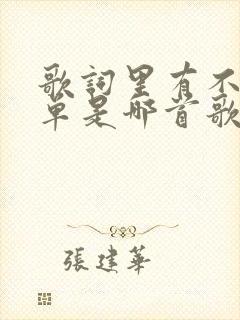 歌詞里有不
單是哪首歌
張建華